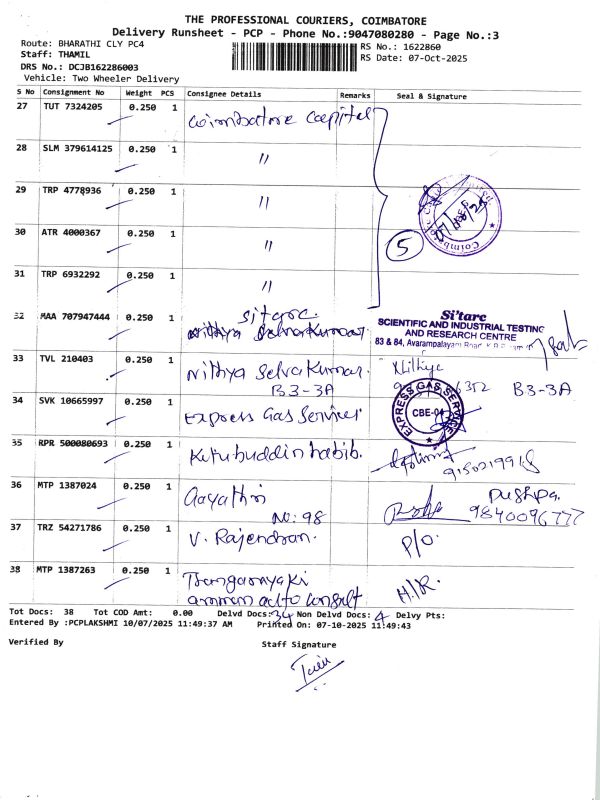 THE PROFESSIONAL COURIERS, COIMBATORE
Delivery Runsheet - PCP - Phone No.:9047080280 - Page No.:3
Route: BHARATHI CLY PC4
Staff: THAMIL
DRS No.: DCJB162286003
Vehicle: Two Wheeler Delivery
RS No.: 1622860
RS Date: 07-Oct-2025
S No Consignment No Weight PCS Consignee Details Remarks Seal & Signature
27 TUT 7324205 0.250 1 Coimbatore Capital
28 SLM 379614125 0.250 1 "
29 TRP 4778936 0.250 1 "
30 ATR 4000367 0.250 1 "
5
31 TRP 6932292 0.250 1 "
32 MAA 707947444 0.250 1 Sitarc.
Si'tarc
SCIENTIFIC AND INDUSTRIAL TESTING
AND RESEARCH CENTRE
83 & 84, Avarampalayam Road,
33 TVL 210403 0.250 1 Nithya Selvakumar.
B3-3A
Nithya
B3-3A
34 SVK 10665997 0.250 1 Express Gas Service
EXPRESS GAS SERVICE
CBE-04
35 RPR 500080693 0.250 1 Kutubuddin habib.
36 MTP 1387024 0.250 1 Gayathri
No: 98
Pushpa.
9840096777
37 TRZ 54271786 0.250 1 V. Rajendran.
P/O.
38 MTP 1387263 0.250 1 Thangamyaki
amman auto consult
H/R.
Tot Docs: 38 Tot COD Amt: 0.00 Delvd Docs: 34 Non Delvd Docs: 4 Delvy Pts:
Entered By :PCPLAKSHMI 10/07/2025 11:49:37 AM Printed On: 07-10-2025 11:49:43
Verified By Staff Signature